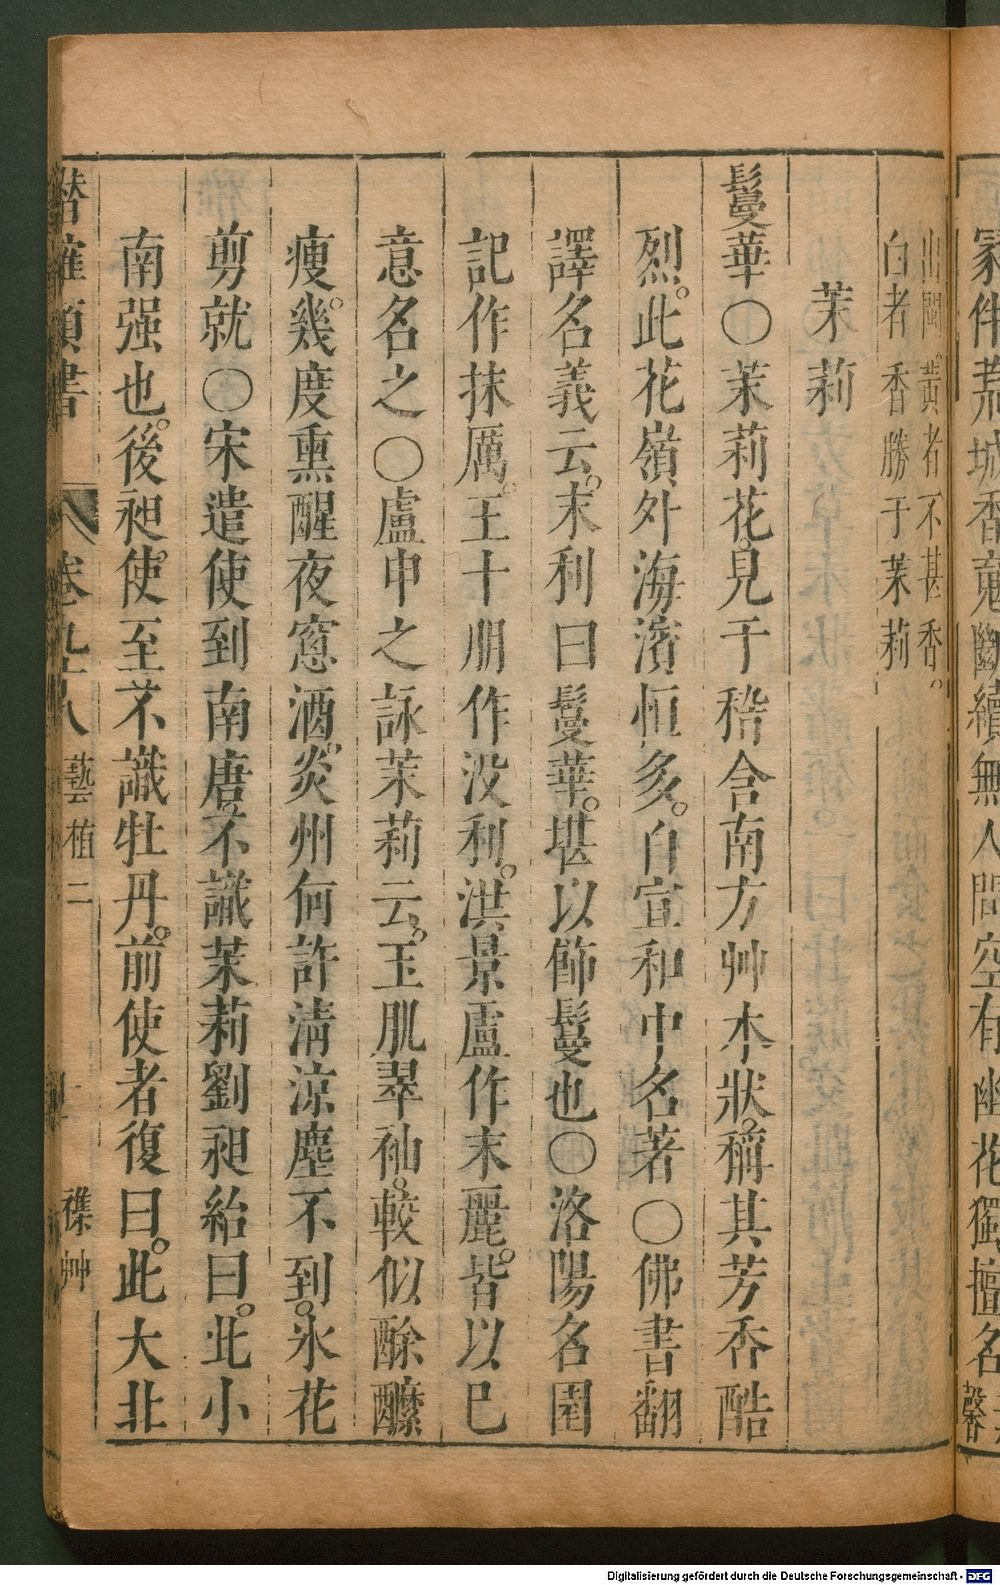 家伴荒城香䰟斷續無人問空有幽花獨擅名馨
出閩黃者不甚香
白者香勝于茉莉
茉莉
鬘華〇茉莉花見于嵇含南方艸木狀稱其芳香酷
烈此花嶺外海濱恒多自宣和中名著〇佛書翻
譯名義云末利曰鬘華堪以飾鬘也〇洛陽名園
記作抹厲王十朋作没利洪景盧作末麗皆以巳
意名之〇盧申之詠茉莉云玉肌翠袖較似酴醾
瘦幾度熏醒夜窻酒炎州何許清涼塵不到氷花
剪就〇宋遣使到南唐不識茉莉劉昶紿曰此小
南强也後昶使至不識牡丹前使者復曰此大北
潛確類書
卷九十八
藝植二
襍艸
Digitalisierung gefördert durch die Deutsche Forschungsgemeinschaft - DFG